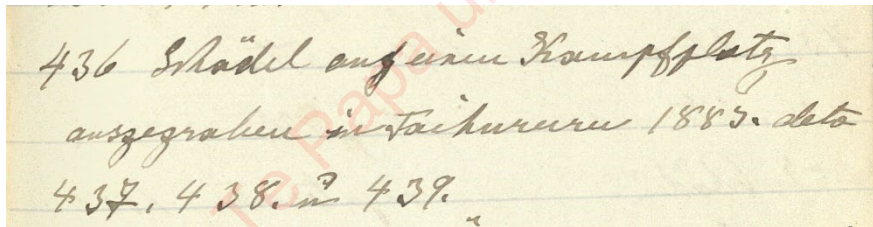 436 Schädel auf einem Kampfplatz
ausgegraben in Taihururu 1883. deto
437, 438. u 439.
Te Rapa